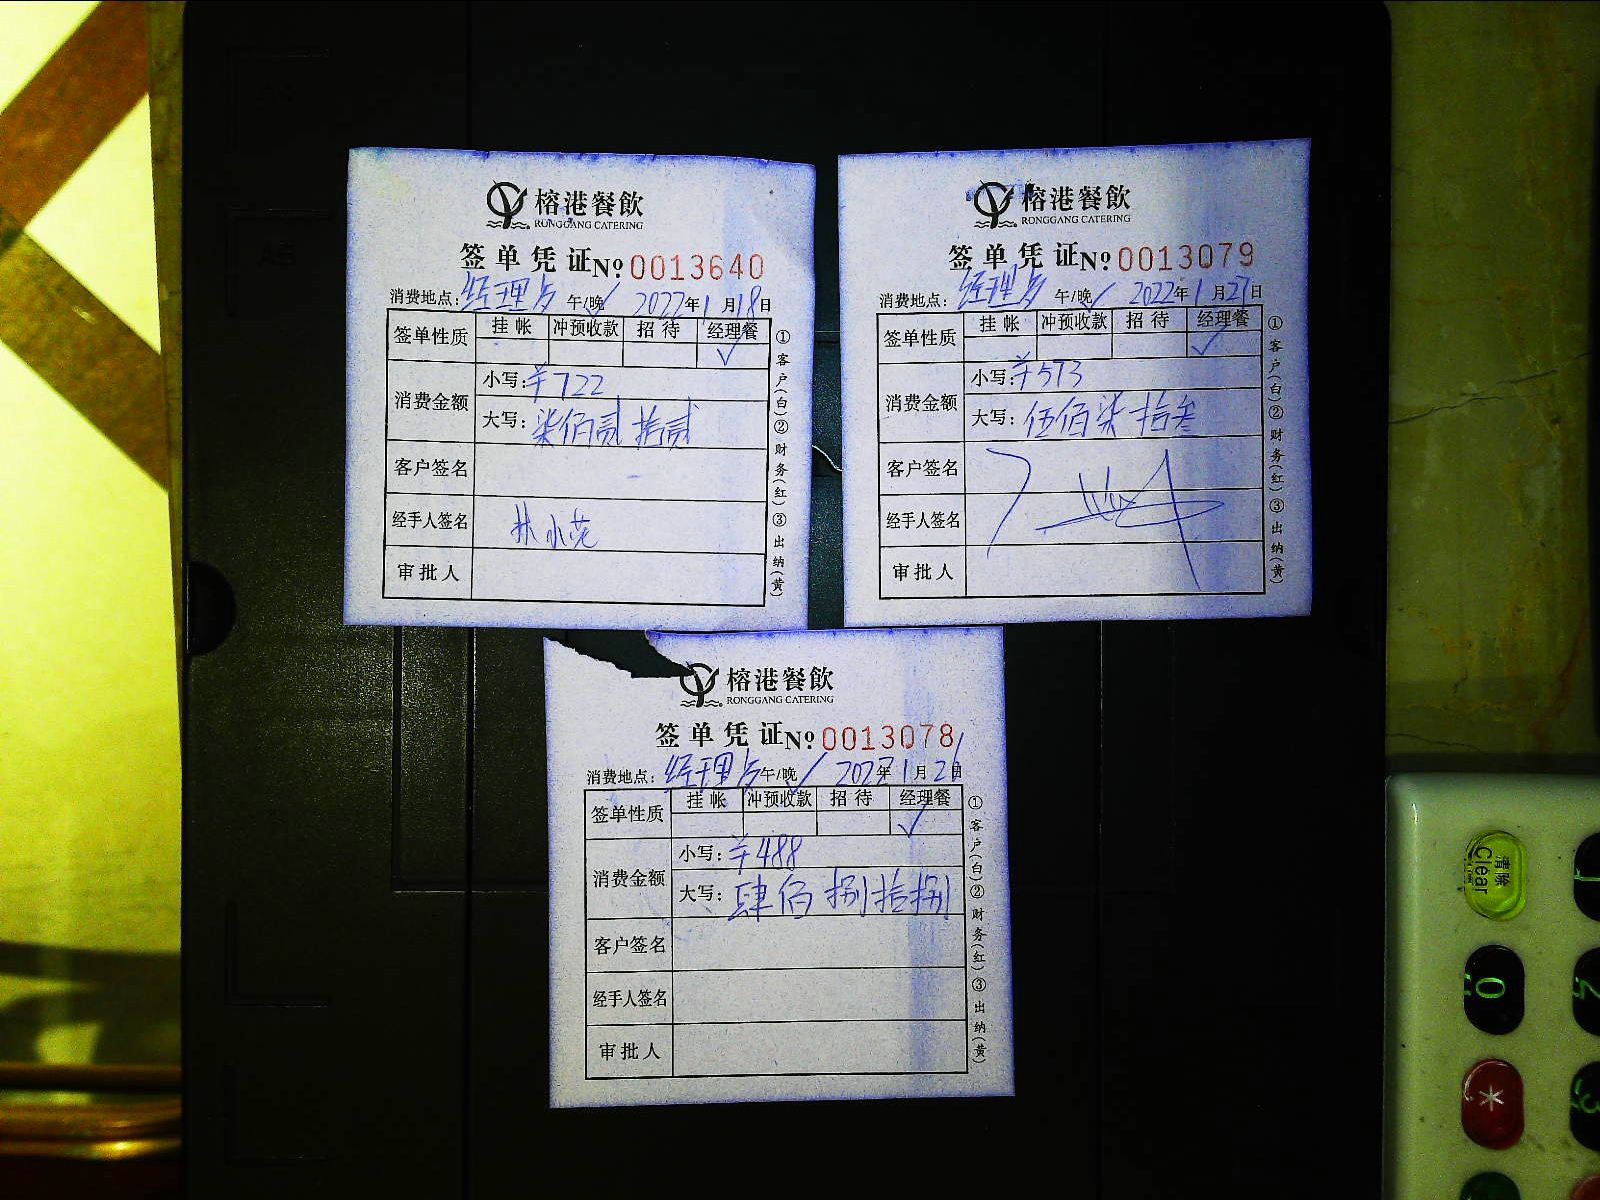 榕港餐飲
RONGGANG CATERING
签单凭证 № 0013640
消费地点：经理房 午/晚✓ 2022年1月18日
签单性质 挂帐 冲预收款 招待 经理餐
✓
消费金额 小写：¥722
大写：柒佰贰拾贰
客户签名
经手人签名 林小花
审批人
①客户（白）②财务（红）③出纳（黄）
榕港餐飲
RONGGANG CATERING
签单凭证 № 0013079
消费地点：经理房 午/晚✓ 2022年1月21日
签单性质 挂帐 冲预收款 招待 经理餐
✓
消费金额 小写：¥573
大写：伍佰柒拾叁
客户签名
经手人签名
审批人
①客户（白）②财务（红）③出纳（黄）
榕港餐飲
RONGGANG CATERING
签单凭证 № 0013078
消费地点：经理房 午/晚✓ 2022年1月21日
签单性质 挂帐 冲预收款 招待 经理餐
✓
消费金额 小写：¥488
大写：肆佰捌拾捌
客户签名
经手人签名
审批人
①客户（白）②财务（红）③出纳（黄）
清除
Clear
0
*